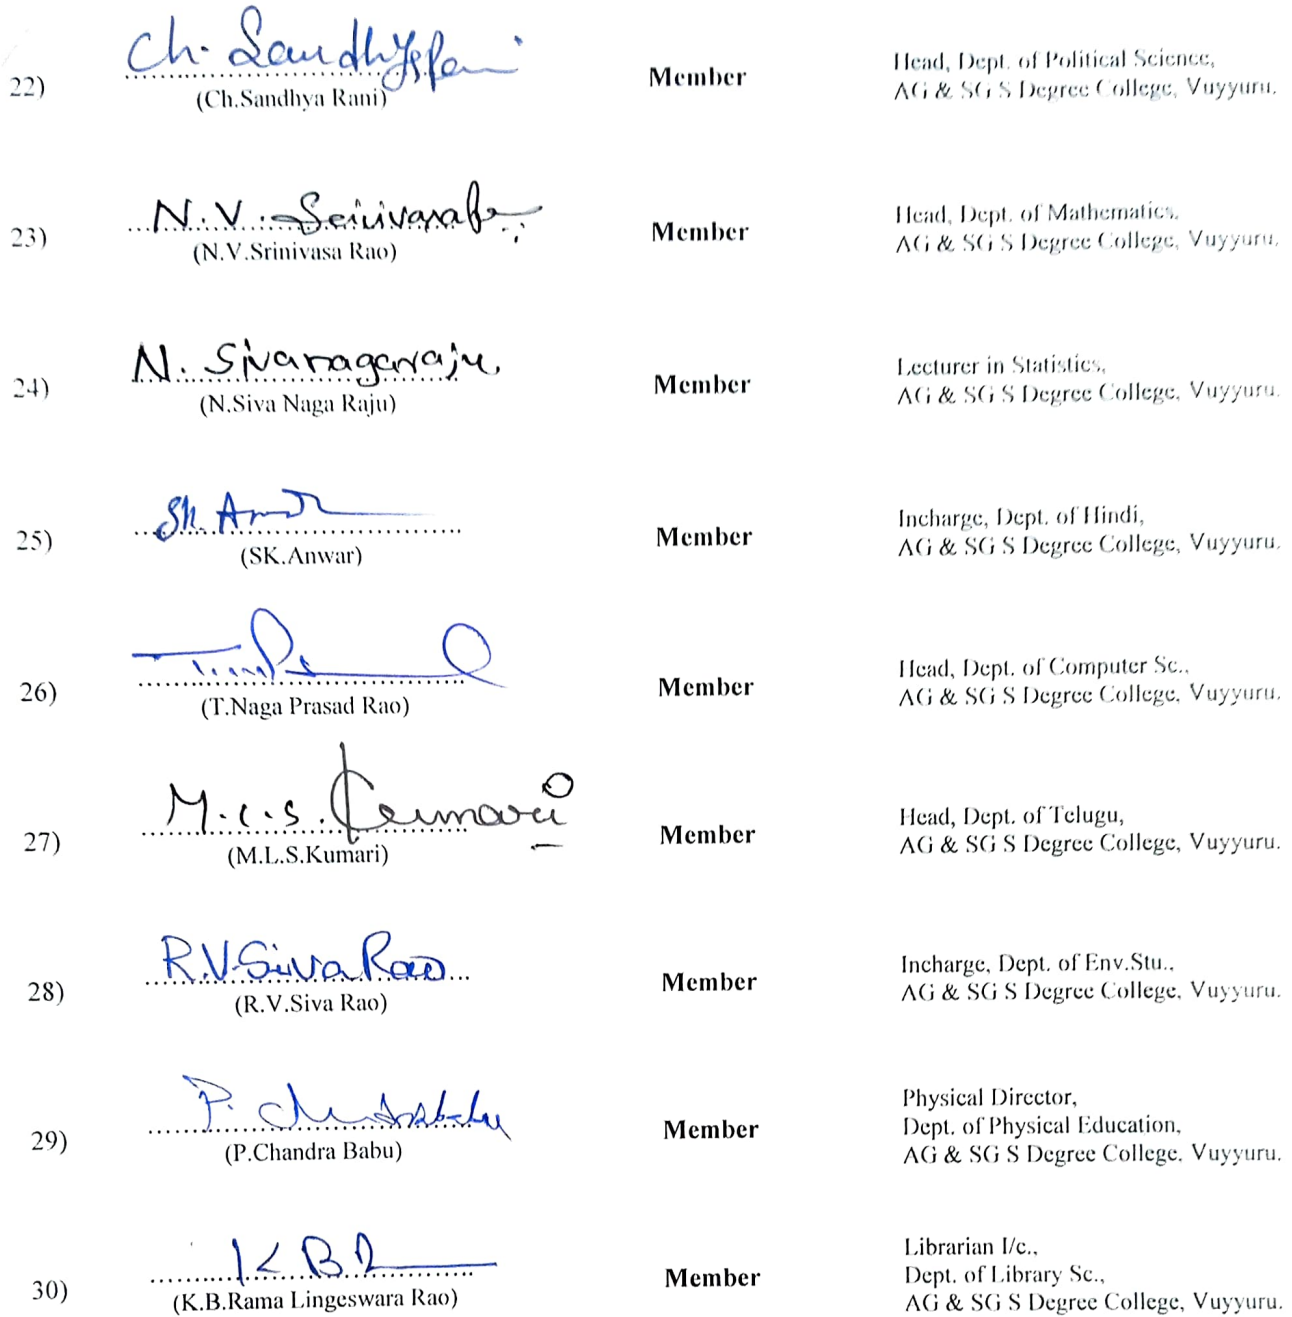 Ch. Sandhya Rani
22)
(Ch.Sandhya Rani)
Member
Head, Dept. of Political Science,
AG & SG S Degree College, Vuyyuru.
N.V. Srinivasa Rao
23)
(N.V.Srinivasa Rao)
Member
Head, Dept. of Mathematics,
AG & SG S Degree College, Vuyyuru.
N. Sivanagaraju
24)
(N.Siva Naga Raju)
Member
Lecturer in Statistics,
AG & SG S Degree College, Vuyyuru.
Sk. Anwar
25)
(SK.Anwar)
Member
Incharge, Dept. of Hindi,
AG & SG S Degree College, Vuyyuru.
26)
(T.Naga Prasad Rao)
Member
Head, Dept. of Computer Sc.,
AG & SG S Degree College, Vuyyuru.
M.L.S. Kumari
27)
(M.L.S.Kumari)
Member
Head, Dept. of Telugu,
AG & SG S Degree College, Vuyyuru.
R.V.Siva Rao
28)
(R.V.Siva Rao)
Member
Incharge, Dept. of Env.Stu.,
AG & SG S Degree College, Vuyyuru.
P. Chandrababu
29)
(P.Chandra Babu)
Member
Physical Director,
Dept. of Physical Education,
AG & SG S Degree College, Vuyyuru.
K B R
30)
(K.B.Rama Lingeswara Rao)
Member
Librarian I/c.,
Dept. of Library Sc.,
AG & SG S Degree College, Vuyyuru.